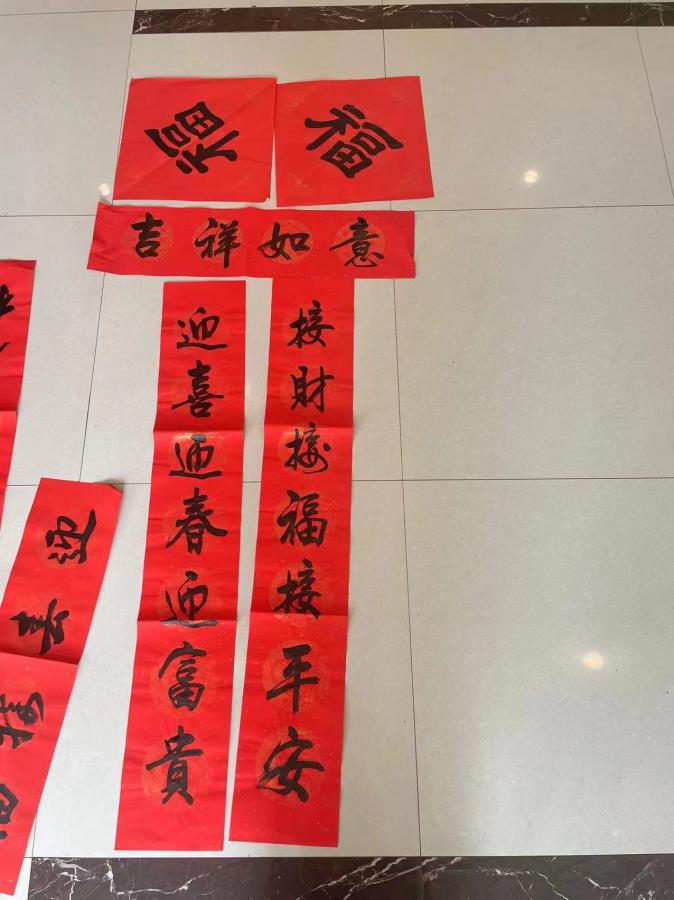 福
福
吉祥如意
接財接福接平安
迎喜迎春迎富貴
迎